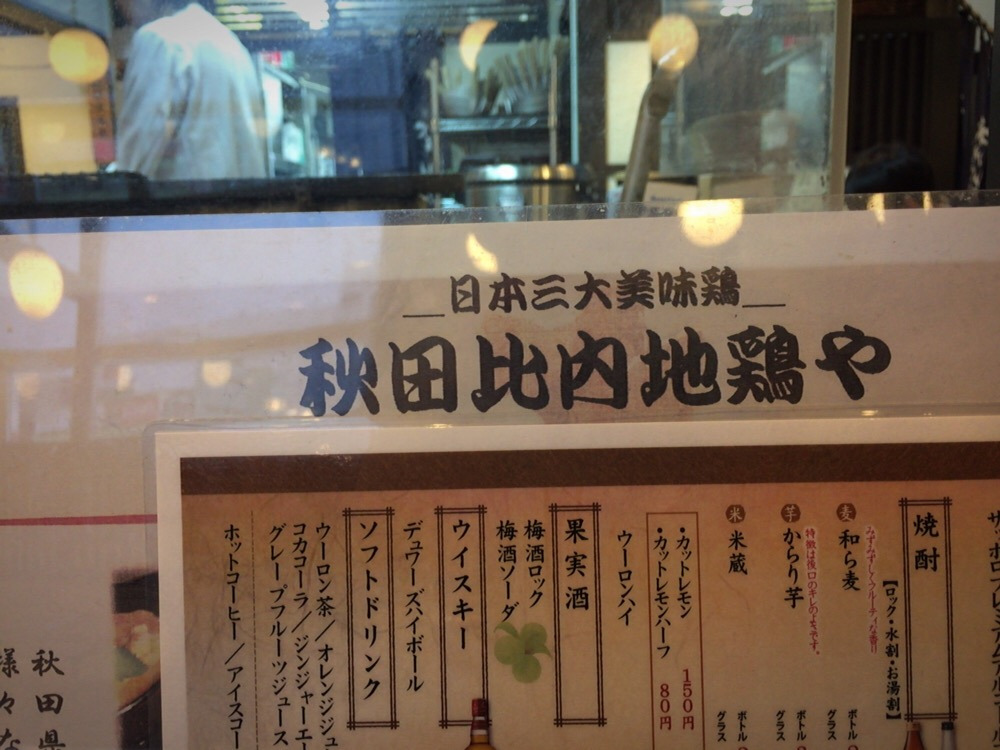 日本三大美味鶏
秋田比内地鶏や
焼酎
【ロック・水割・お湯割】
麦 和ら麦
みずみずしくフルーティな香り
ボトル
グラス
芋 からり芋
特徴は後口のキレのよさです。
ボトル
グラス
米 米蔵
ボトル
グラス
・カットレモン 150円
・カットレモンハーフ 80円
ウーロンハイ
果実酒
梅酒ロック
梅酒ソーダ
ウイスキー
デュワーズハイボール
ソフトドリンク
ウーロン茶／オレンジジュ
コカコーラ／ジンジャーエ
グレープフルーツジュース
ホットコーヒー／アイスコー
秋田県
様々な